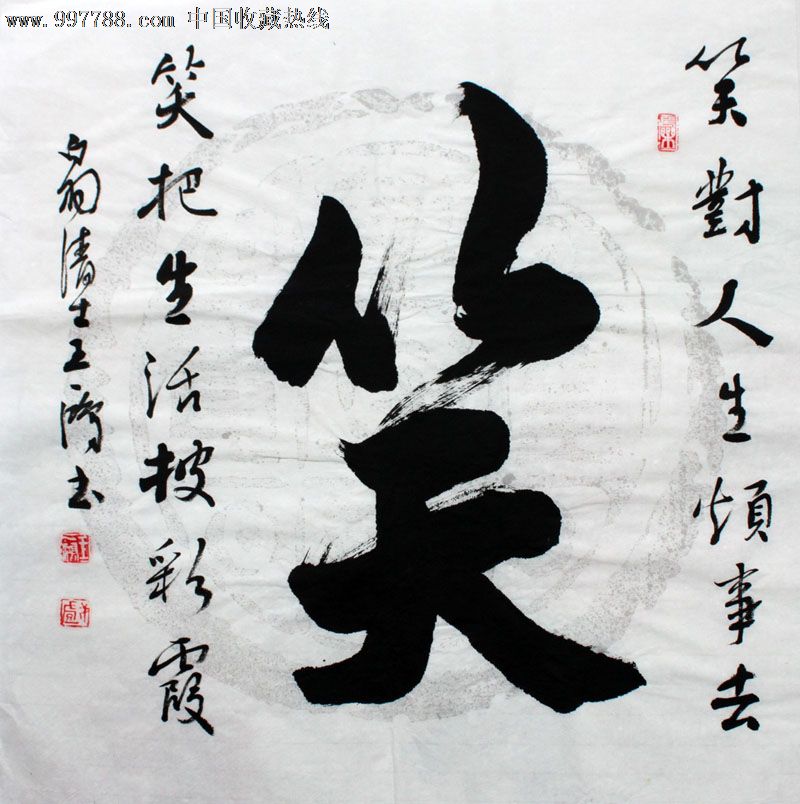 www.997788.com 中国收藏热线
笑對人生煩事去
笑
笑把生活披彩霞
清士王濤书